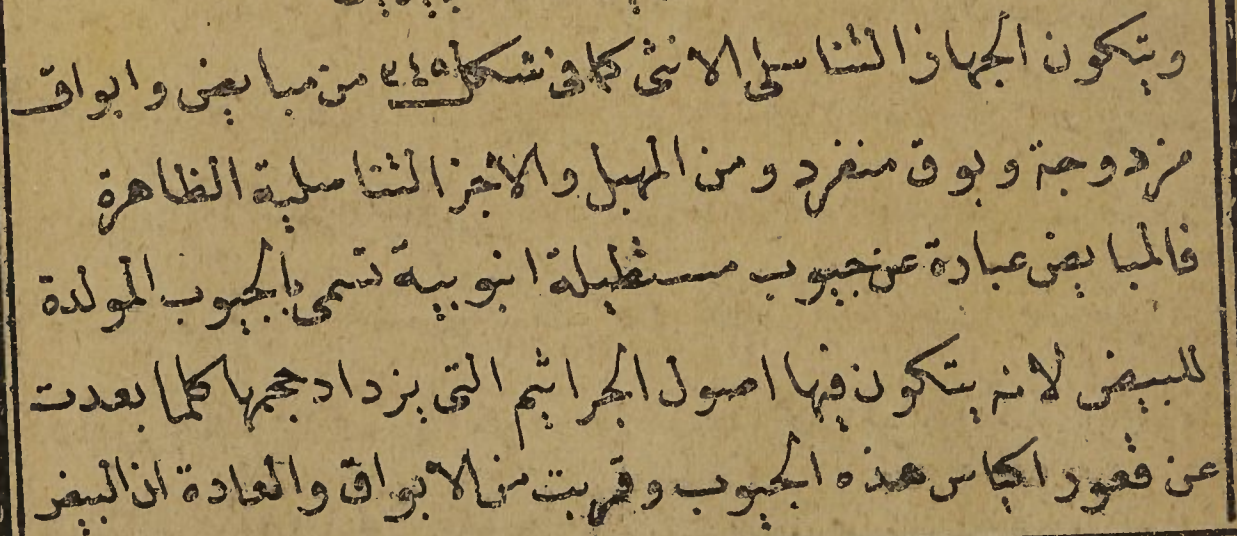 ويتكون الجهاز التناسلى الانثى كما فى شكل ٣٤٥ من مبايض وابواق
مزدوجة وبوق منفرد ومن المهبل والاجزا التناسلية الظاهرة
فالمبايض عبارة عن جيوب مستطيلة انبوبية تسمى بالجيوب المولدة
للبيض لانه يتكون فيها اصول الجراثيم التى يزداد حجمها كلما بعدت
عن قعور اكياس هذه الجيوب وقربت من الابواق والعادة ان البيض